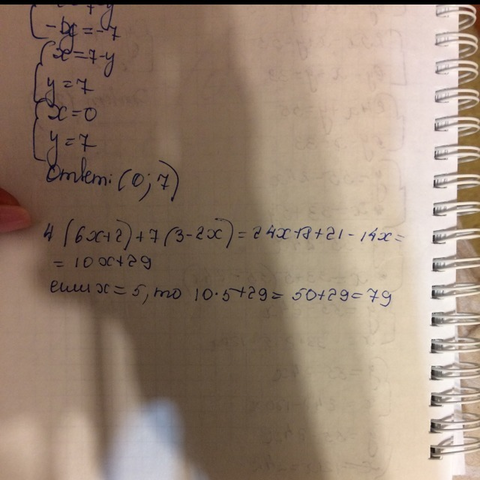 -y = -7
x = 7-y
y = 7
x = 0
y = 7
Ответ: (0; 7)
4(6x+2)+7(3-2x) = 24x+8+21-14x=
= 10x+29
если x = 5, то 10·5+29 = 50+29 = 79